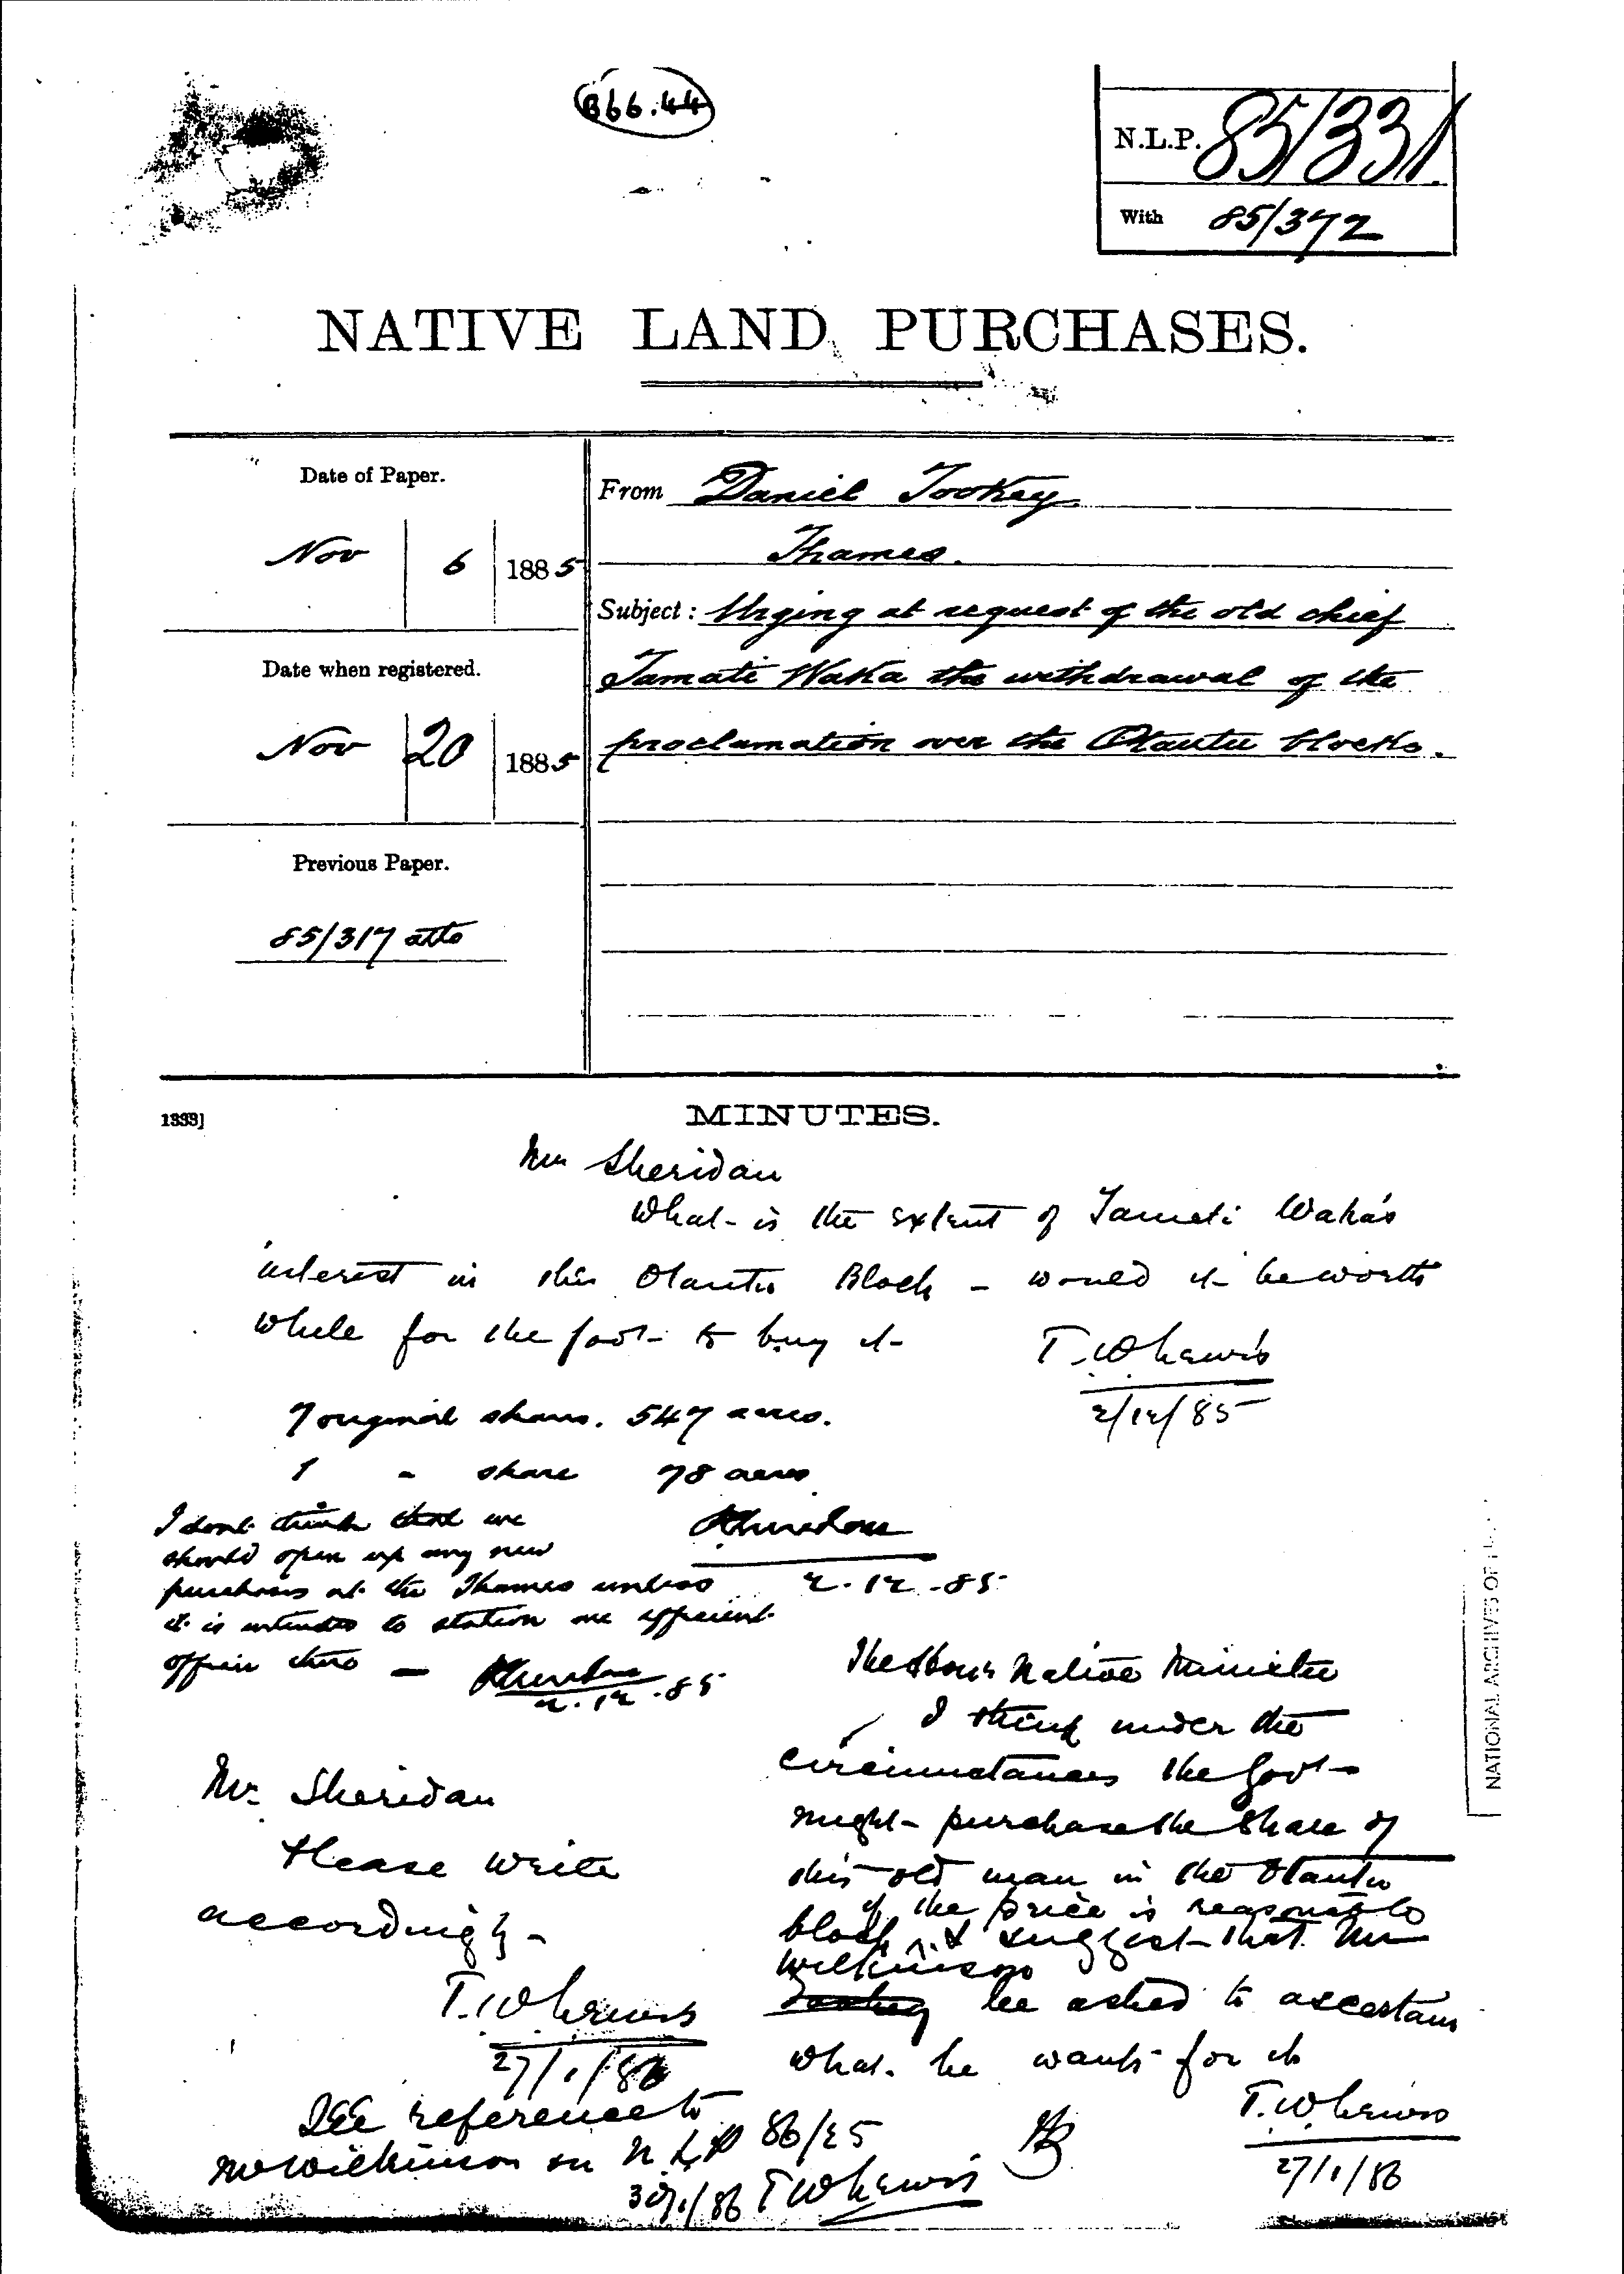 B66.44
N.L.P. 85/331
With 85/372
NATIVE LAND PURCHASES.
Date of Paper.
Nov 6 1885
Date when registered.
Nov 20 1885
Previous Paper.
85/317 atto
From Daniel Tookey
Thames.
Subject: Urging at request of the old chief
Tamati Waka the withdrawal of the
proclamation over the Otautu blocks.
1333]
MINUTES.
Mr Sheridan
What is the extent of Tamati Waka's
interest in this Otautu Block - would it be worth
while for the Govt to buy it
T.W. Lewis
2/12/85
7 original shares. 547 acres.
1 " share 78 acres
Sheridan
2.12.85
I dont think that we
should open up any new
purchases at the Thames unless
it is intended to station an efficient
officer there -
Sheridan
2.12.85
The Hon Native Minister
I think under the
circumstances the Govt
might purchase the share of
this old man in the Otautu
block if the price is reasonable
& suggest that Mr
Wilkinson
Tookey be asked to ascertain
what he wants for it
T.W. Lewis
27/1/86
Mr Sheridan
Please write
accordingly -
T.W. Lewis
27/1/86
See reference to
Mr Wilkinson on N L P 86/25
30/1/86 T W Lewis
NATIONAL ARCHIVES OF